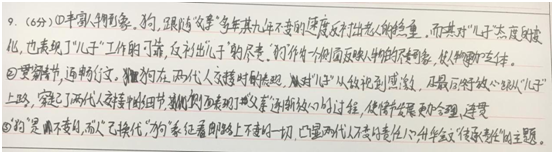 9.(6分)①丰富人物形象。狗,跟随"父亲"多年其九年不变的速度反衬出老人的稳重,而其对"儿子"态度的变
化,也表现了"儿子"工作的可靠,反衬出"儿子"的尽责。"狗"作为一个侧面反映人物的不变形象,使人物更加立体。
②贯穿情节,连畅行文。狗在两代人交接时的表现,从对"儿子"从敌视到感激,及最后得放心跟从"儿子"
上路,穿起了两代人交接中的细节,表现了"父亲"逐渐放心的过程,使情节发展更加合理,连贯
③"狗"是不变的,而"人"已换代,"狗"象征着邮路上不变的一切,凸显两代人不变的责任心,升华全文"传承责任"的主题。